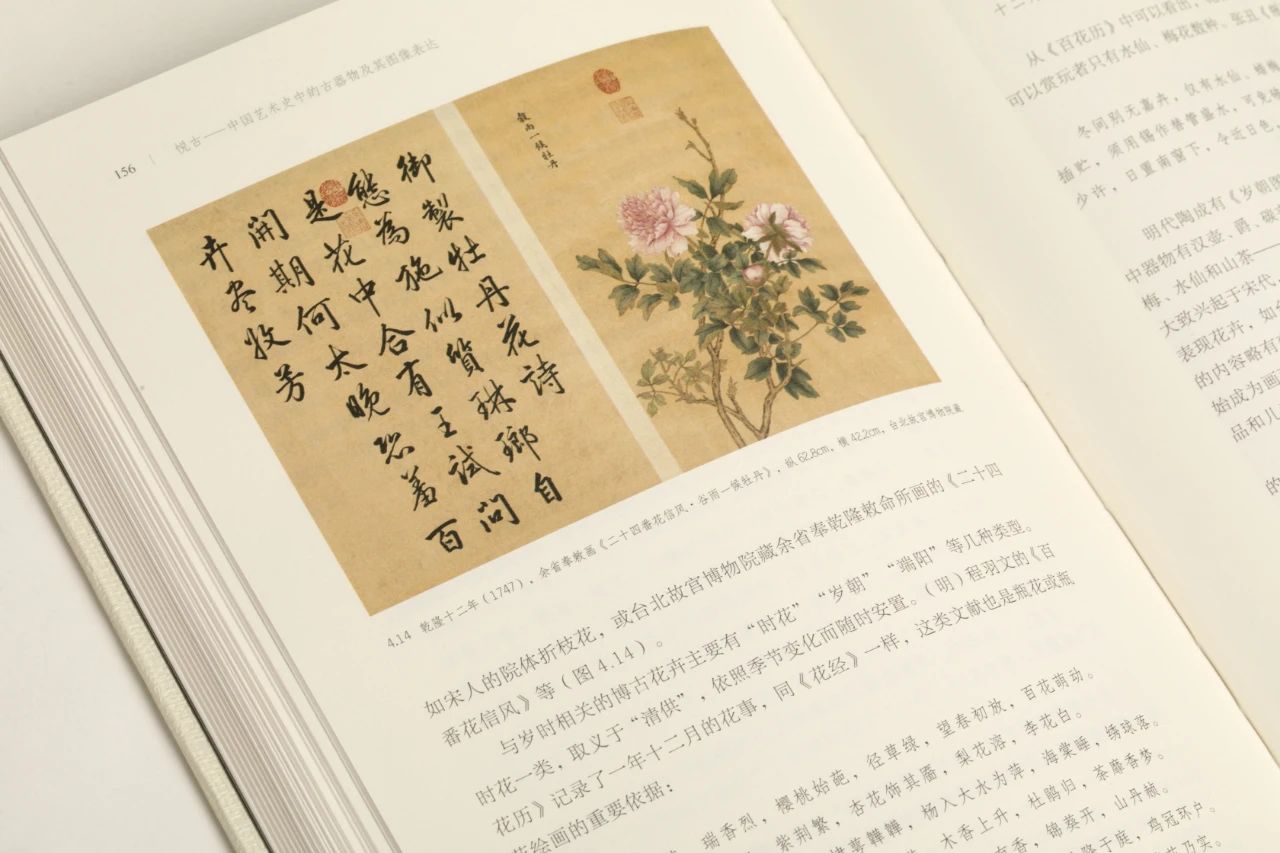 156 | 悦古——中国艺术史中的古器物及其图像表达
御製牡丹花詩
態為施似質琳瑯自
是花中合有王試問
開期何太晚恐羞百
卉尽收芳
穀雨一候牡丹
4.14 乾隆十二年（1747），余省奉敕画《二十四番花信风·谷雨一候牡丹》，纵62.8cm，横42.2cm，台北故宫博物院藏
如宋人的院体折枝花，或台北故宫博物院藏余省奉乾隆敕命所画的《二十四
番花信风》等（图4.14）。
与岁时相关的博古花卉主要有“时花”“岁朝”“端阳”等几种类型。
时花一类，取义于“清供”，依照季节变化而随时安置。（明）程羽文的《百
花历》记录了一年十二月的花事，同《花经》一样，这类文献也是瓶花或瓶
花绘画的重要依据：
瑞香烈，樱桃始葩，径草绿，望春初放，百花萌动。
紫荆繁，杏花饰其靥，梨花溶，李花白。
杨入大水为萍，海棠睡，绣球落。
木香上升，杜鹃归，荼蘼香梦。
香，锦葵开，山丹赪。
于庭，鸡冠环户。
乃实。
十二月
从《百花历》中可以看出，
可以赏玩者只有水仙、梅花数种、张丑《
冬间别无嘉卉，仅有水仙、蜡梅
插贮，须用锡作替管盛水，可免破
少许，日置南窗下，令近日色，
明代陶成有《岁朝
中器物有汉壶、爵、碟
梅、水仙和山茶——
大致兴起于宋代、
表现花卉，如
的内容略有
始成为画
品和儿
的